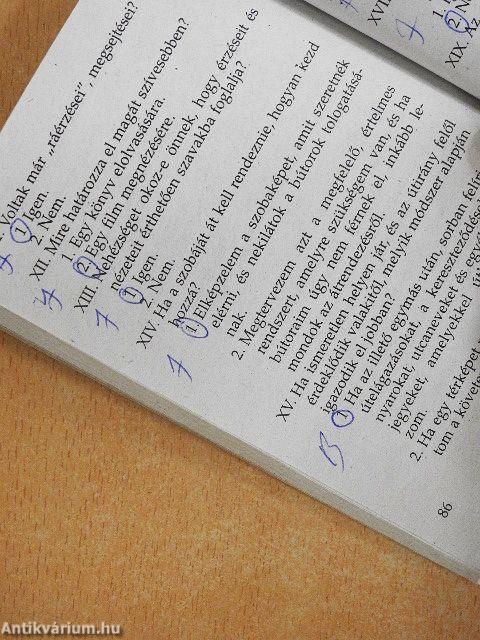 Voltak már „ráérzései”, megsejtései?
1. Igen.
2. Nem.
XII. Mire határozza el magát szívesebben?
1. Egy könyv elolvasására.
2. Egy film megnézésére.
XIII. Nehézséget okoz-e önnek, hogy érzéseit és
ézeteit érthetően szavakba foglalja?
1. Igen.
2. Nem.
XIV. Ha a szobáját át kell rendeznie, hogyan kezd
hozzá?
1. Elképzelem a szobaképet, amit szeretnék
elérni, és nekilátok a bútorok tologatásá-
nak.
2. Megtervezem azt a megfelelő, értelmes
rendszert, amelyre szükségem van, és ha
bútoraim úgy nem férnek el, inkább le-
mondok az átrendezésről.
XV. Ha ismeretlen helyen jár, és az útirány felől
érdeklődik valakitől, melyik módszer alapján
igazodik el jobban?
1. Ha az illető egymás után, sorban
útelágazásokat, a kereszteződése
nyarokat, utcaneveket és egyé
jegyeket, amelyekkel
zom.
2. Ha egy térképet
tom a követe
86
B
XVII.
XIX. Az
Antikvárium.hu